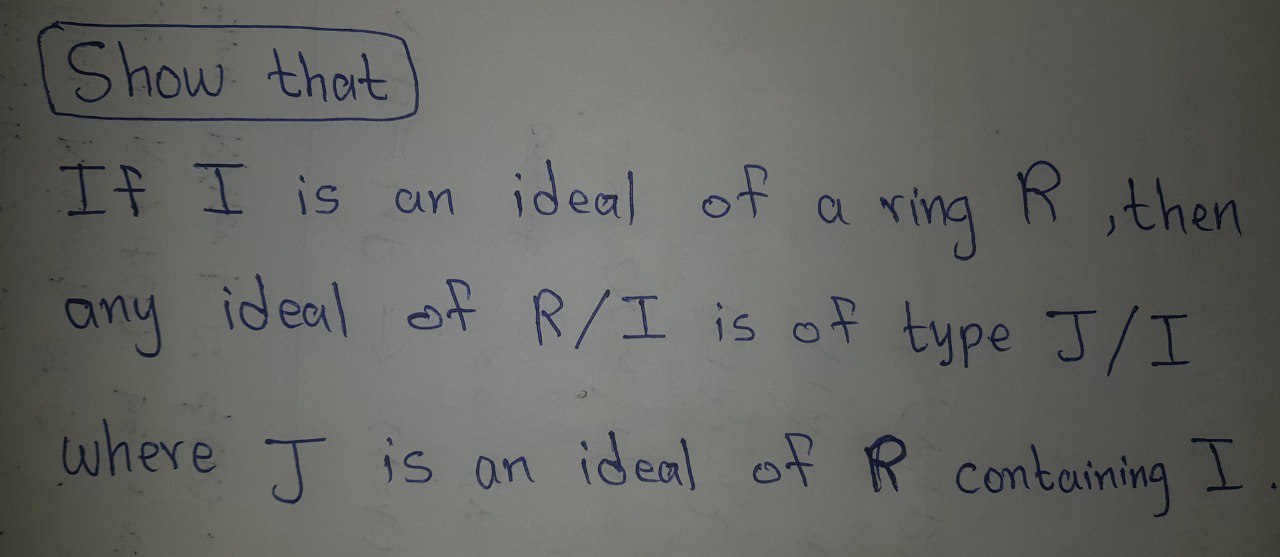 Show that
If I is an ideal of a ring R, then
any ideal of R/I is of type J/I
where J is an ideal of R containing I.